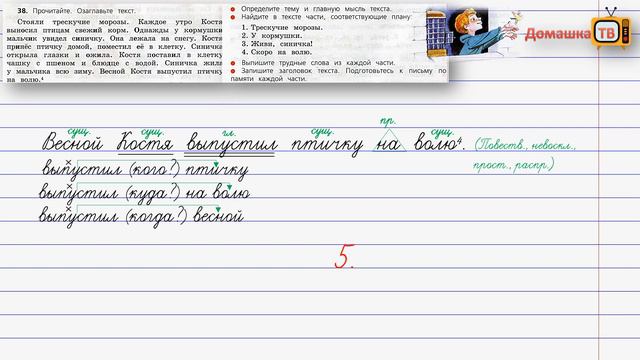 38. Прочитайте. Озаглавьте текст.
Стояли трескучие морозы. Каждое утро Костя
выносил птицам свежий корм. Однажды у кормушки
мальчик увидел синичку. Она лежала на снегу. Костя
принёс птичку домой, поместил её в клетку. Синичка
открыла глазки и ожила. Костя поставил в клетку
чашку с пшеном и блюдце с водой. Синичка жила
у мальчика всю зиму. Весной Костя выпустил птичку
на волю.⁴
Определите тему и главную мысль текста.
Найдите в тексте части, соответствующие плану:
1. Трескучие морозы.
2. У кормушки.
3. Живи, синичка!
4. Скоро на волю.
Выпишите трудные слова из каждой части.
Запишите заголовок текста. Подготовьтесь к письму по
памяти каждой части.
Домашка ТВ
сущ. сущ. гл. сущ. пр. сущ.
Весной Костя выпустил птичку на волю⁴. (Повеств., невоскл.,
прост., распр.)
выпустил (кого?) птичку
выпустил (куда?) на волю
выпустил (когда?) весной
5.